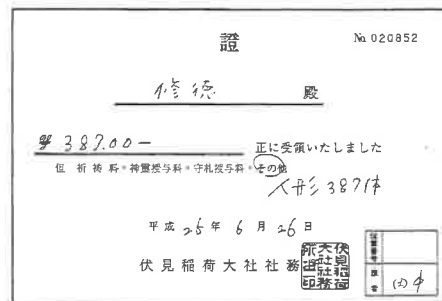 證
No. 020852
修徳 殿
¥38700- 正に受領いたしました
但 祈祷料・神璽授与料・守札授与料・その他
人形387体
平成 25 年 6 月 26 日
伏見稲荷大社社務所
伏見稲荷大社社務所出納印